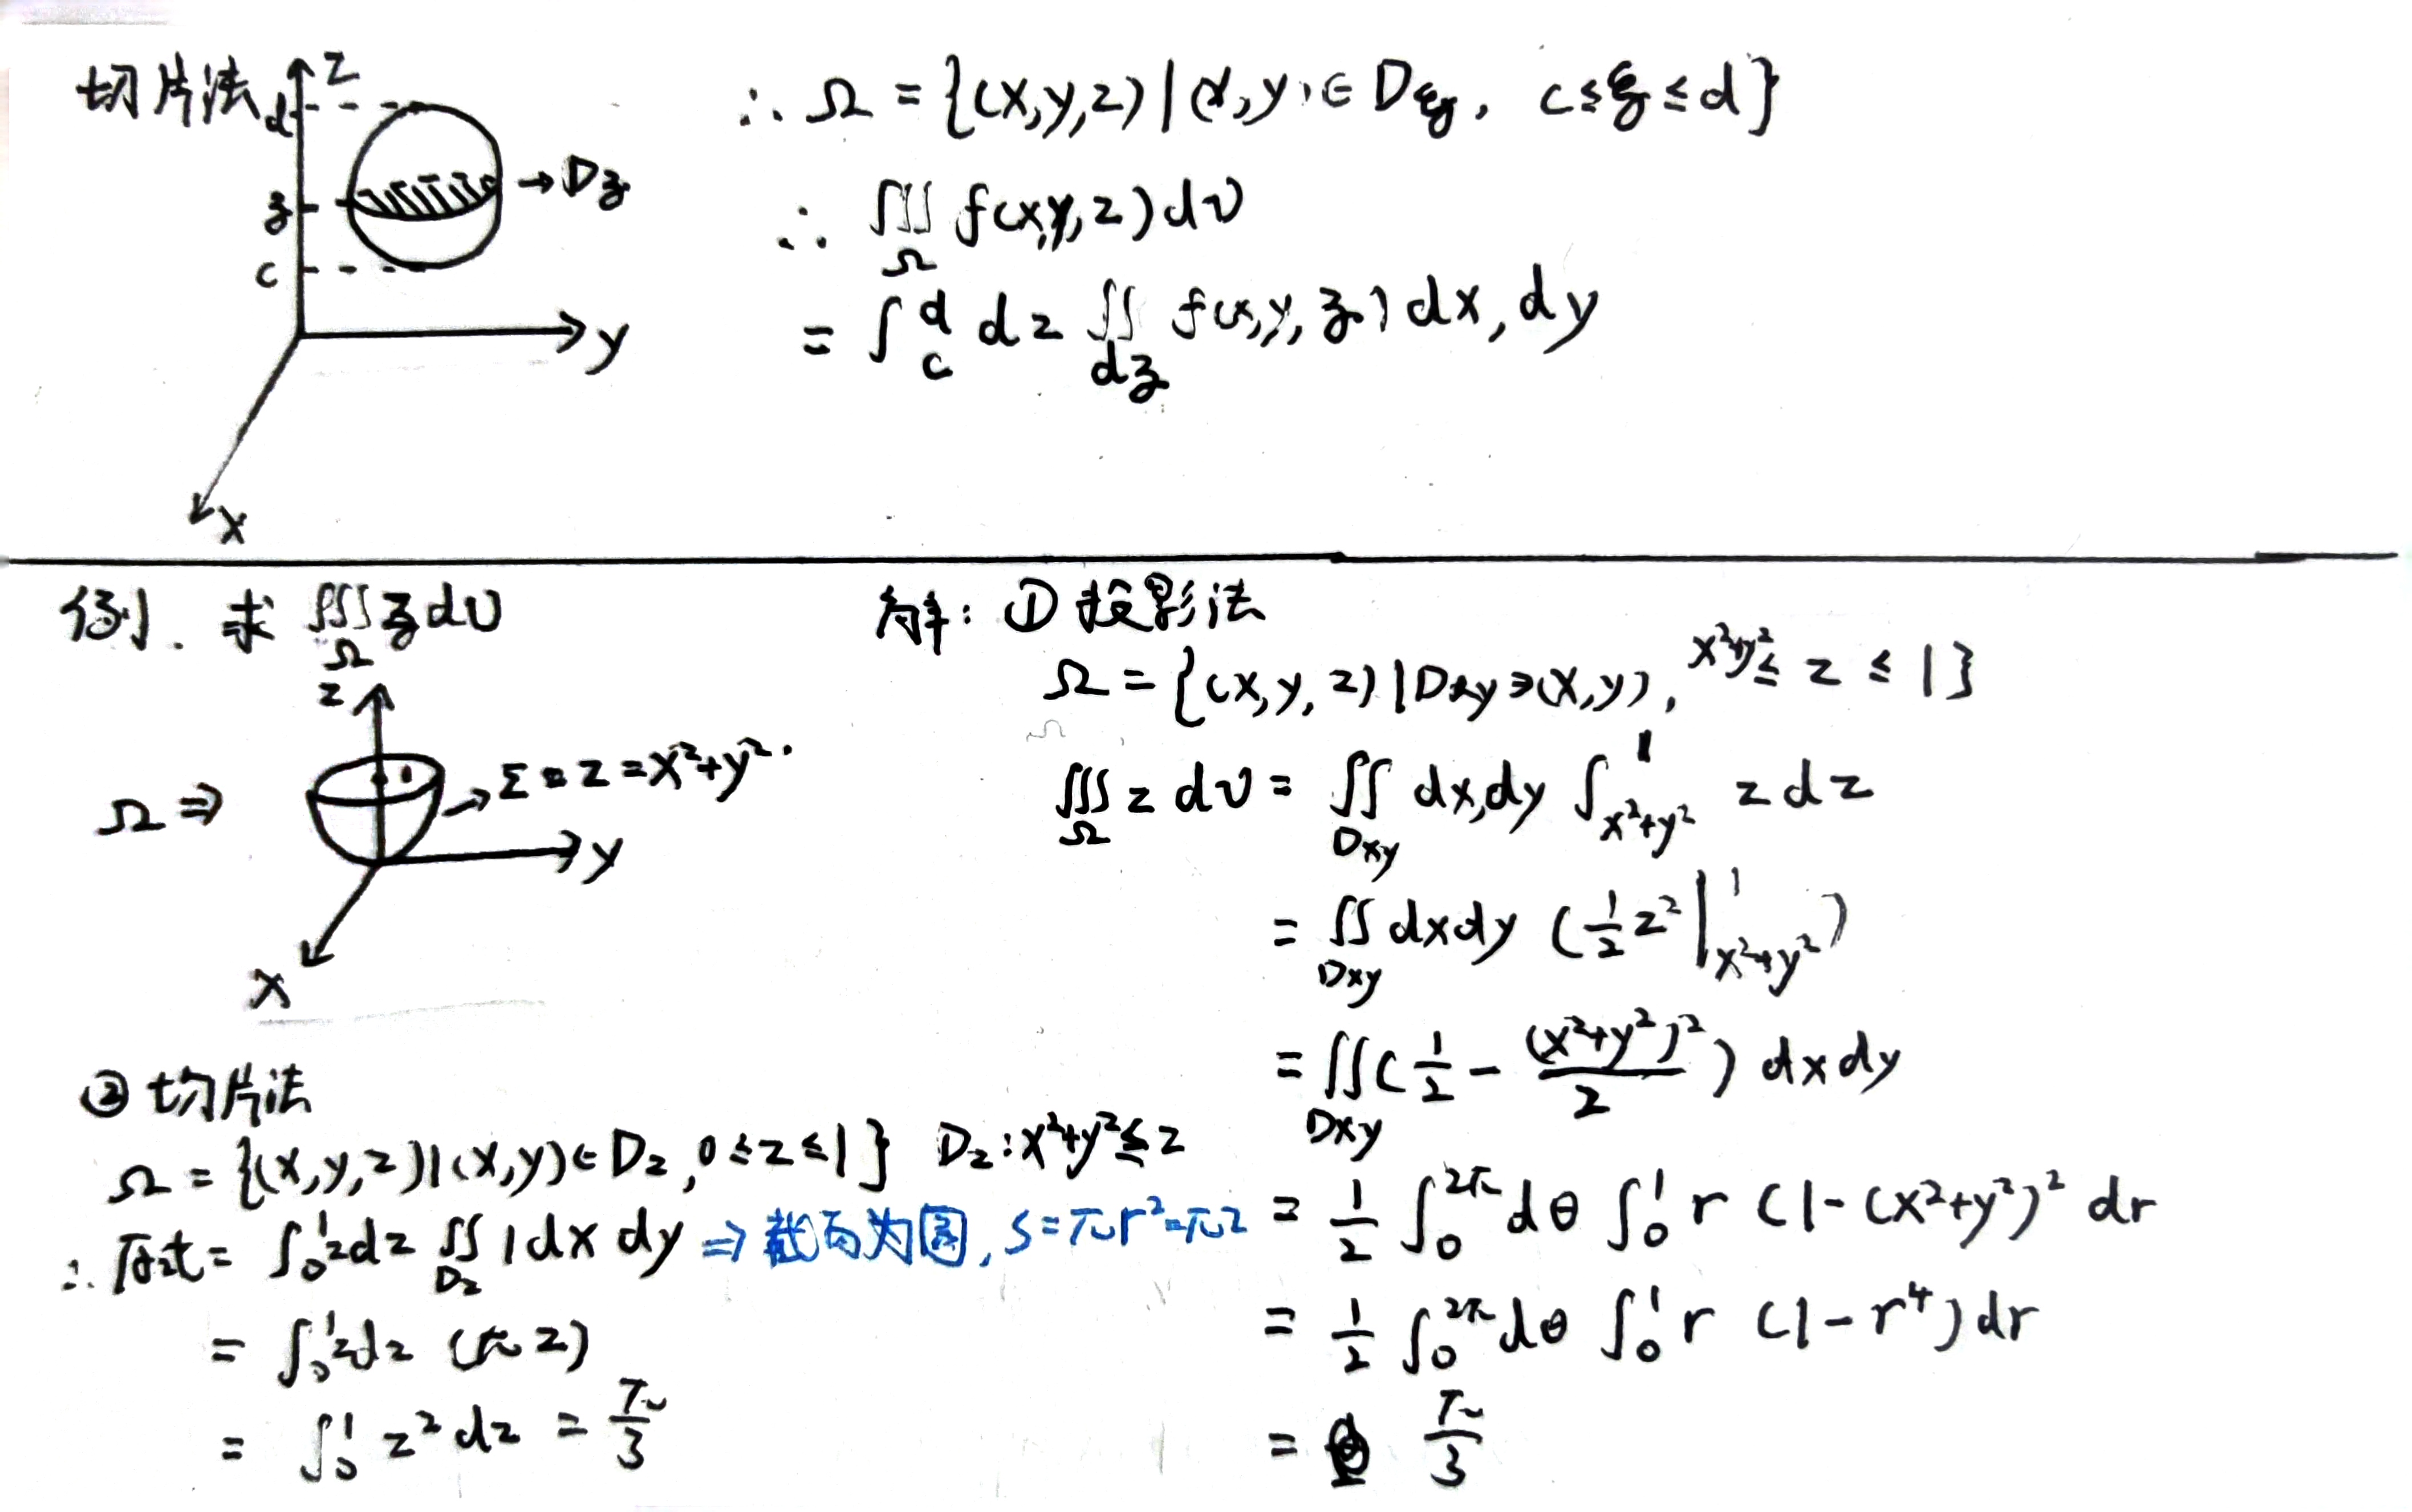 切片法
z
d
z
c
→Dz
y
x
∴ Ω = {(x,y,z)|(x,y)∈Dz, c≤z≤d}
∴ ∭Ω f(x,y,z)dv
= ∫c^d dz ∬dz f(x,y,z)dx,dy
例. 求 ∭Ω zdv
Ω ⇒
z
1
→Σ: z=x²+y².
y
x
解: ① 投影法
Ω = {(x,y,z)|Dxy∋(x,y), x²+y² ≤ z ≤ 1}
∭Ω z dv = ∬Dxy dx,dy ∫_{x²+y²}^1 z dz
= ∬Dxy dxdy (½z²|_{x²+y²}^1)
= ∬Dxy (½ - (x²+y²)²/2) dxdy
= ½ ∫0^2π dθ ∫0^1 r (1-(x²+y²)² dr
= ½ ∫0^2π dθ ∫0^1 r (1-r⁴)dr
= π/3
② 切片法
Ω = {(x,y,z)|(x,y)∈Dz, 0≤z≤1} Dz: x²+y²≤z
∴ 原式= ∫0^1 zdz ∬Dz 1dx dy ⇒ 截面为圆, S=πr²=πz
= ∫0^1 zdz (πz)
= ∫0^1 z² dz = π/3